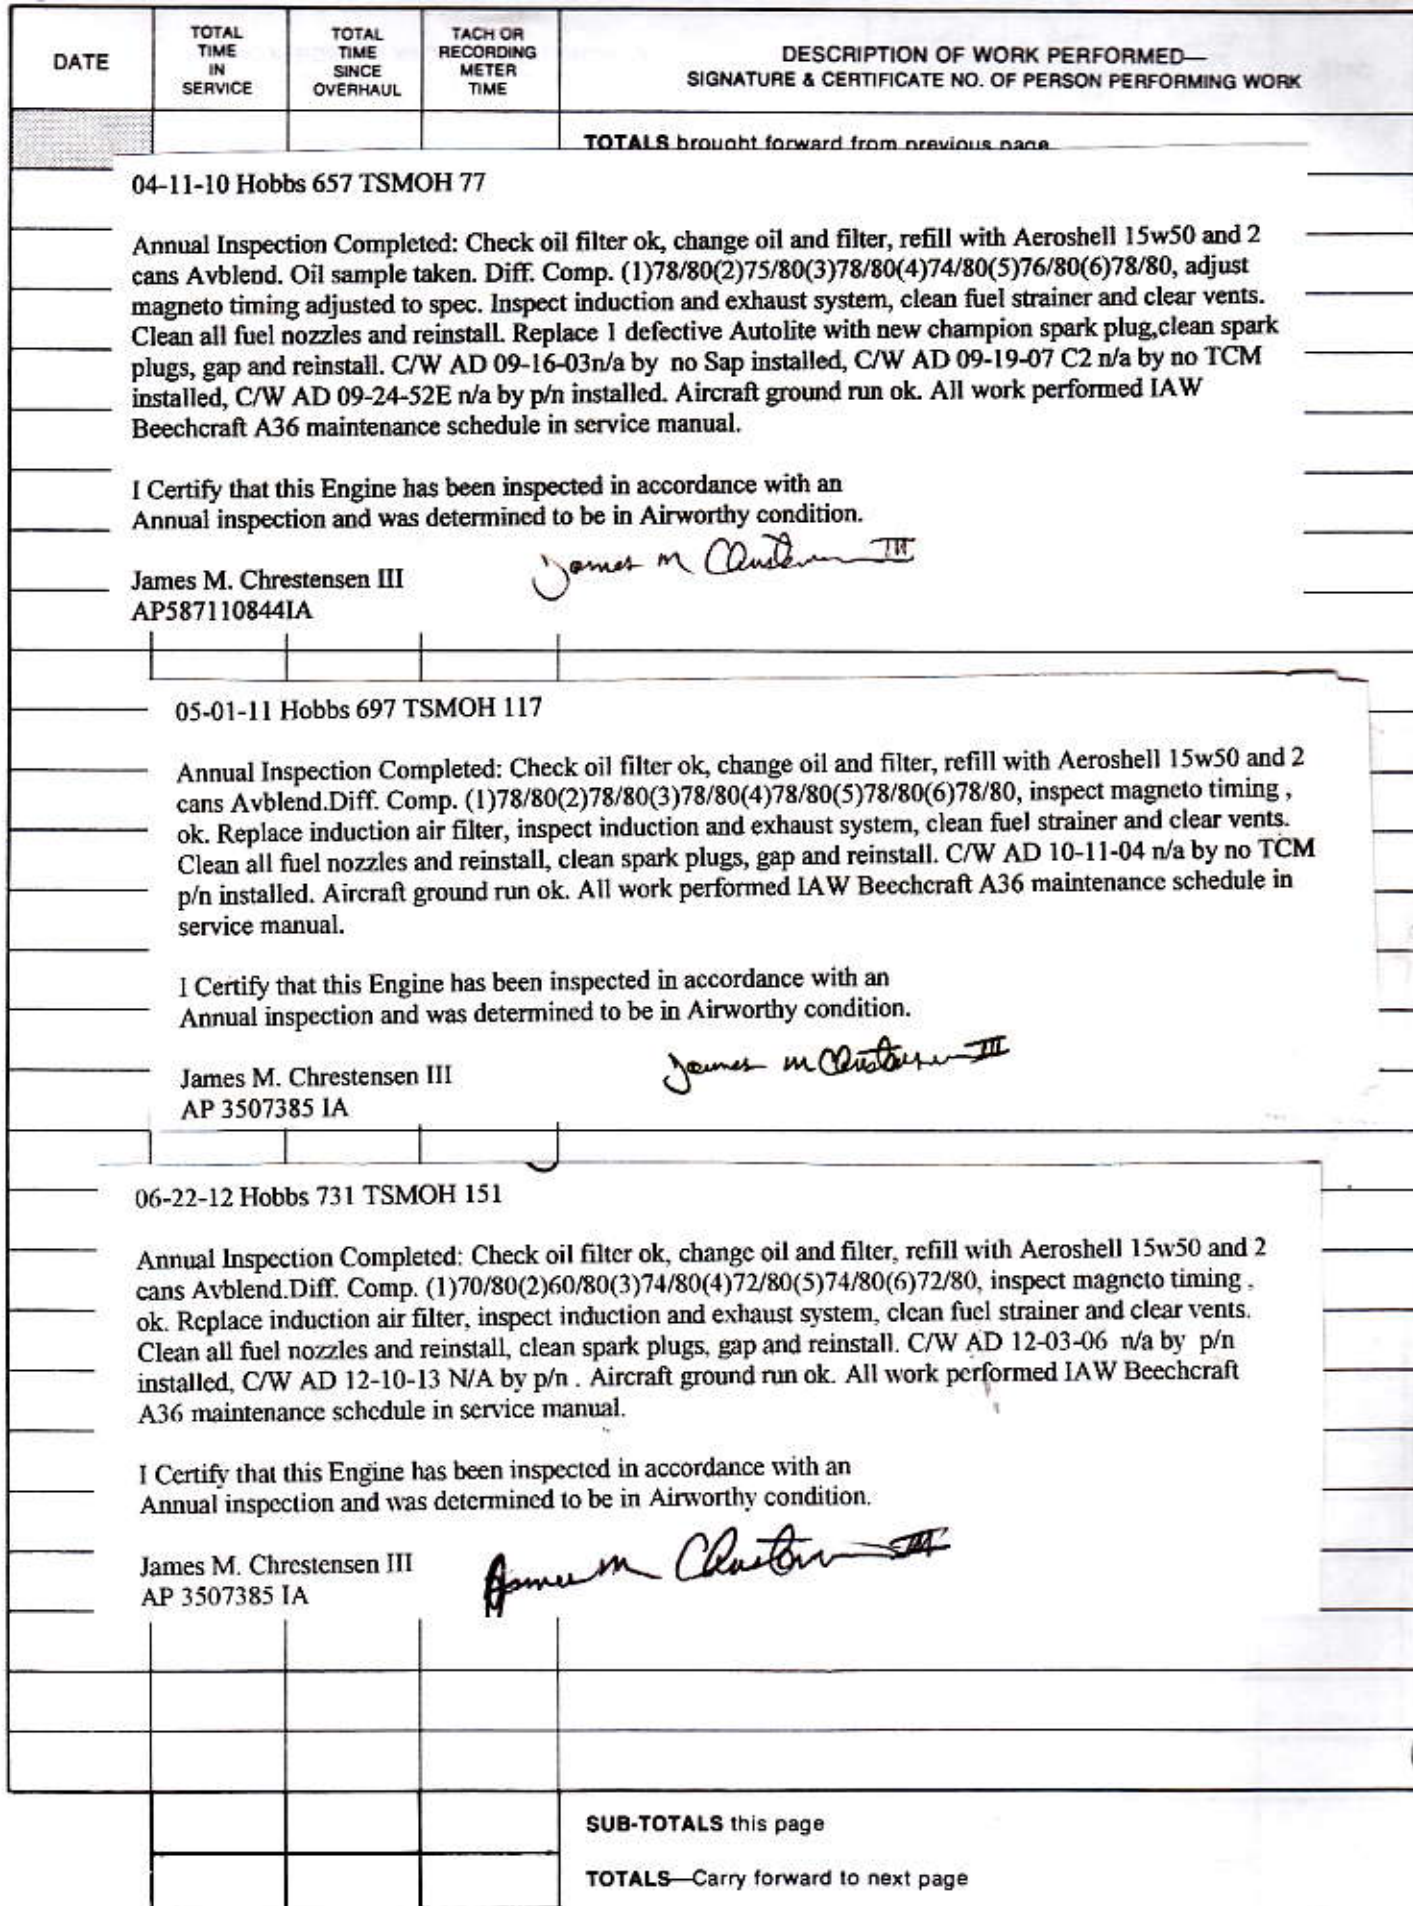 DATE
TOTAL TIME IN SERVICE
TOTAL TIME SINCE OVERHAUL
TACH OR RECORDING METER TIME
DESCRIPTION OF WORK PERFORMED—
SIGNATURE & CERTIFICATE NO. OF PERSON PERFORMING WORK
TOTALS brought forward from previous page
04-11-10 Hobbs 657 TSMOH 77
Annual Inspection Completed: Check oil filter ok, change oil and filter, refill with Aeroshell 15w50 and 2
cans Avblend. Oil sample taken. Diff. Comp. (1)78/80(2)75/80(3)78/80(4)74/80(5)76/80(6)78/80, adjust
magneto timing adjusted to spec. Inspect induction and exhaust system, clean fuel strainer and clear vents.
Clean all fuel nozzles and reinstall. Replace 1 defective Autolite with new champion spark plug,clean spark
plugs, gap and reinstall. C/W AD 09-16-03n/a by no Sap installed, C/W AD 09-19-07 C2 n/a by no TCM
installed, C/W AD 09-24-52E n/a by p/n installed. Aircraft ground run ok. All work performed IAW
Beechcraft A36 maintenance schedule in service manual.
I Certify that this Engine has been inspected in accordance with an
Annual inspection and was determined to be in Airworthy condition.
James M. Chrestensen III
AP587110844IA
James M Chrestensen III
05-01-11 Hobbs 697 TSMOH 117
Annual Inspection Completed: Check oil filter ok, change oil and filter, refill with Aeroshell 15w50 and 2
cans Avblend.Diff. Comp. (1)78/80(2)78/80(3)78/80(4)78/80(5)78/80(6)78/80, inspect magneto timing ,
ok. Replace induction air filter, inspect induction and exhaust system, clean fuel strainer and clear vents.
Clean all fuel nozzles and reinstall, clean spark plugs, gap and reinstall. C/W AD 10-11-04 n/a by no TCM
p/n installed. Aircraft ground run ok. All work performed IAW Beechcraft A36 maintenance schedule in
service manual.
I Certify that this Engine has been inspected in accordance with an
Annual inspection and was determined to be in Airworthy condition.
James M. Chrestensen III
AP 3507385 IA
James M Chrestensen III
06-22-12 Hobbs 731 TSMOH 151
Annual Inspection Completed: Check oil filter ok, change oil and filter, refill with Aeroshell 15w50 and 2
cans Avblend.Diff. Comp. (1)70/80(2)60/80(3)74/80(4)72/80(5)74/80(6)72/80, inspect magneto timing ,
ok. Replace induction air filter, inspect induction and exhaust system, clean fuel strainer and clear vents.
Clean all fuel nozzles and reinstall, clean spark plugs, gap and reinstall. C/W AD 12-03-06 n/a by p/n
installed, C/W AD 12-10-13 N/A by p/n . Aircraft ground run ok. All work performed IAW Beechcraft
A36 maintenance schedule in service manual.
I Certify that this Engine has been inspected in accordance with an
Annual inspection and was determined to be in Airworthy condition.
James M. Chrestensen III
AP 3507385 IA
James M Chrestensen III
SUB-TOTALS this page
TOTALS—Carry forward to next page